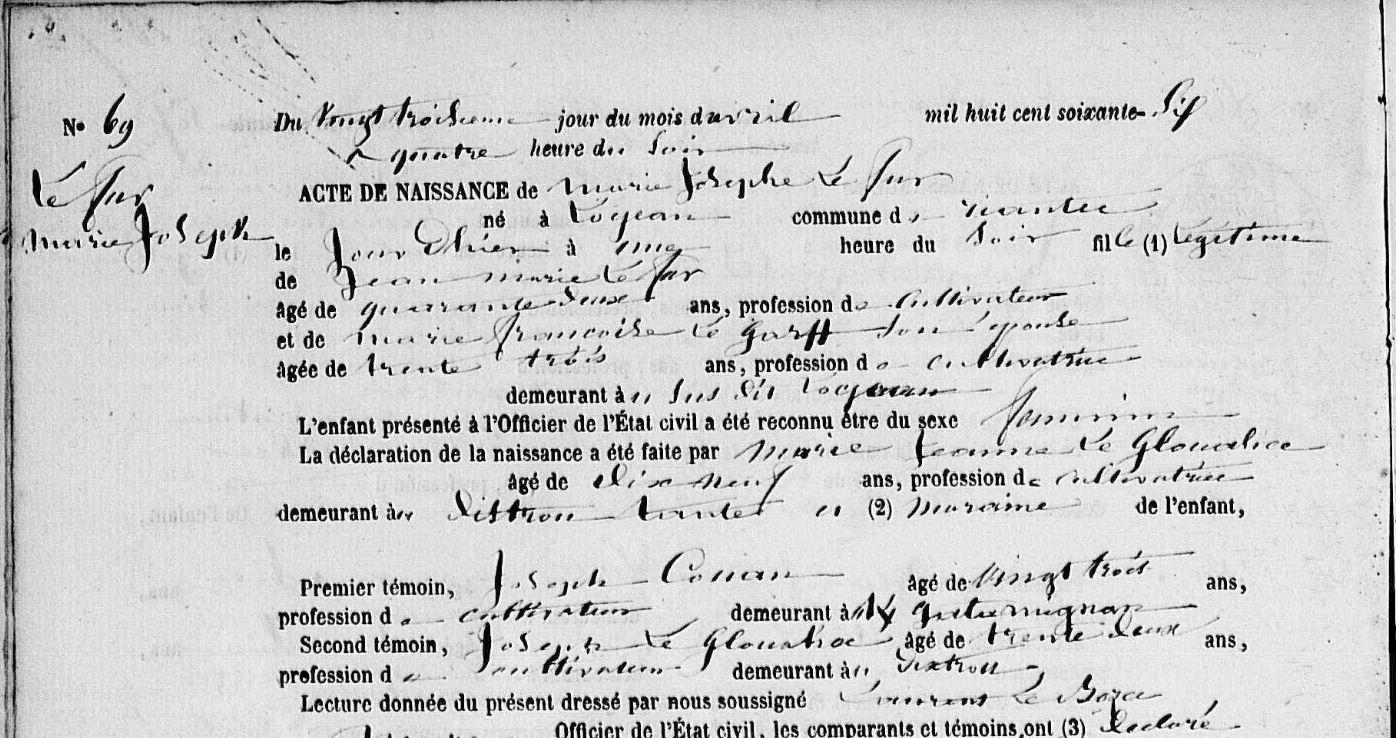 N° 69
Du Vingt troisieme jour du mois d'avril mil huit cent soixante-Six
à quatre heure du Soir
Le Sur
ACTE DE NAISSANCE de Marie Josephe Le Sur
né à Logeau commune de nantec
Marie Joseph
le Jour D'hier à une heure du Soir fille (1) Légitime
de Jean marie Le Sur
âgé de quarante Deux ans, profession de Cultivateur
et de marie françoise Le Garff Son épouse
âgée de trente trois ans, profession de cultivatrice
demeurant à Sus Dit
L'enfant présenté à l'Officier de l'État civil a été reconnu être du sexe feminin
La déclaration de la naissance a été faite par Marie Jeanne Le Glouahec
âgé de Dix neuf ans, profession de cultivatrice
demeurant à (2) maraine de l'enfant,
Premier témoin, Joseph Conan âgé de Vingt trois ans,
profession de cultivateur demeurant à
Second témoin, Joseph Le Glouahec âgé de trente Deux ans,
profession de cultivateur demeurant à
Lecture donnée du présent dressé par nous soussigné Laurent Le
Officier de l'État civil, les comparants et témoins ont (3) Declaré